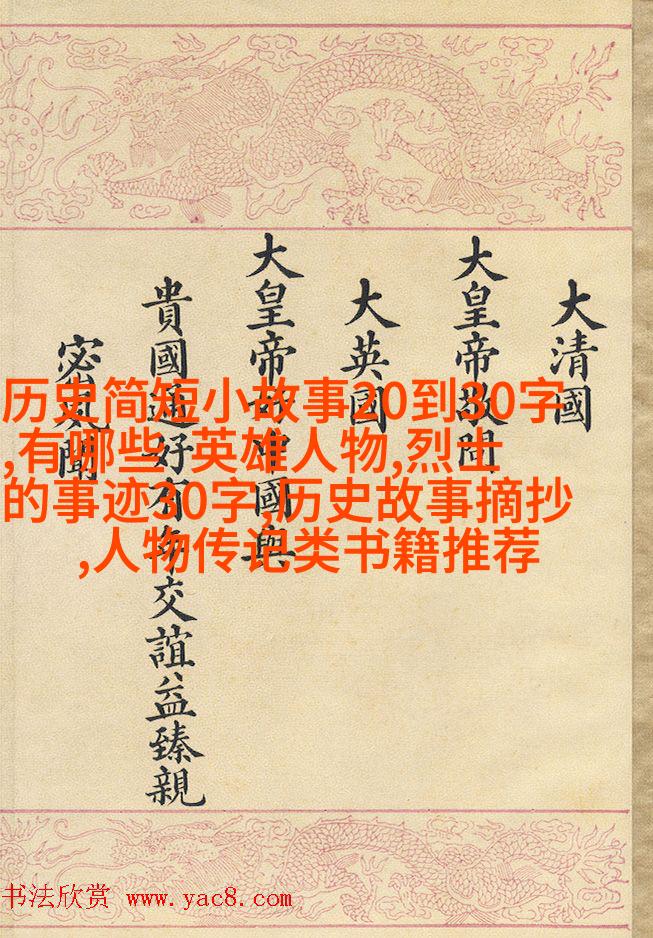 大清國
大皇帝敬問
大英國
大皇帝好中國與
貴國通好有年交誼益臻親
密茲聞
历史简短小故事20到30字
,有哪些 英雄人物,烈士
的事迹30字,历史故事摘抄
,人物传记类书籍推荐
书法欣赏 www.yac8.com